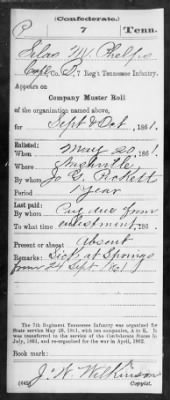 (Confederate.)
P 7 Tenn.
Silas M. Phelps
Corpl, Co. B, 7 Reg't Tennessee Infantry.
Appears on
Company Muster Roll
of the organization named above,
for Sept & Oct, 1861.
Enlisted:
When May 20, 1861.
Where Nashville
By whom Jo. G. Pickett
Period 1 year
Last paid:
By whom Pay due from
To what time enlistment, 186 .
Present or absent Absent
Remarks: Sick at Springs
from 24 Sept '61
The 7th Regiment Tennessee Infantry was organized for
State service May 25, 1861, with ten companies, A to K. It
was transferred to the service of the Confederate States in
July, 1861, and re-organized for the war in April, 1862.
Book mark:
J. W. Wilkinson
(642) Copyist.